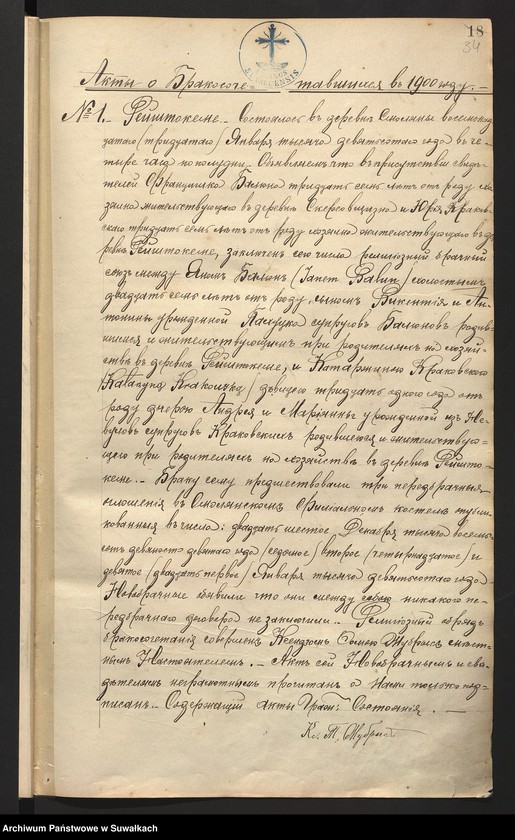 18
34
Акты о Бракосоче тавшихся въ 1900 году. –
№ 1. Рейштокене. – Состоялось въ деревнѣ Смоляны восемнад
цатаго /тридцатаго/ Января тысяча девятьсотаго года въ че-
тыре часа по полудни. Объявляемъ что въ присутствіи свидѣ-
телей Францишка Балюна тридцать семь лѣтъ отъ роду
жительствующаго въ деревнѣ и Юрія Краков-
скаго тридцать семь лѣтъ отъ роду хозяина жительствующаго въ де
ревнѣ Рейштокене, заключенъ сего числа религіозный брачный
союзъ между Яномъ Балюнъ / / холостымъ
двадцать семь лѣтъ отъ роду, сыномъ Викентія и Ан-
тонины урожденной супруговъ Балюновъ родив-
шимся и жительствующимъ при родителяхъ на хозяй-
ствѣ въ деревнѣ Рейштокене, и Катариною Краковскою
/Katarzyna / дѣвицею тридцать одного года отъ
роду дочерью Андрея и Маріянны урожденной изъ
супруговъ Краковскихъ родившеюся и жительствую-
щею при родителяхъ на хозяйствѣ въ деревнѣ Рейшто-
кене. – Браку сему предшествовали три передбрачныя
оглошенія въ Смолянскомъ филіальномъ костелѣ публи-
кованныя въ числа: двадцать шестое Декабря тысяча восемь-
сотъ девяносто девятаго года /седьмое/ второе /четырнадцатое/ и
девятое /двадцать первое/ Января тысяча девятьсотаго года.
Новобрачные объявили что они между собою никакого пе-
редбрачнаго договора не заключили. – Религіозный обрядъ
бракосочетанія совершенъ Ксендзомъ мѣст-
нымъ Настоятелемъ. – Актъ сей Новобрачнымъ и сви-
дѣтелямъ неграмотнымъ прочитанъ а Нами только под-
писанъ. – Содержащій акты Гражд: Состоянія. –
Кс. Т.
Archiwum Państwowe w Suwałkach